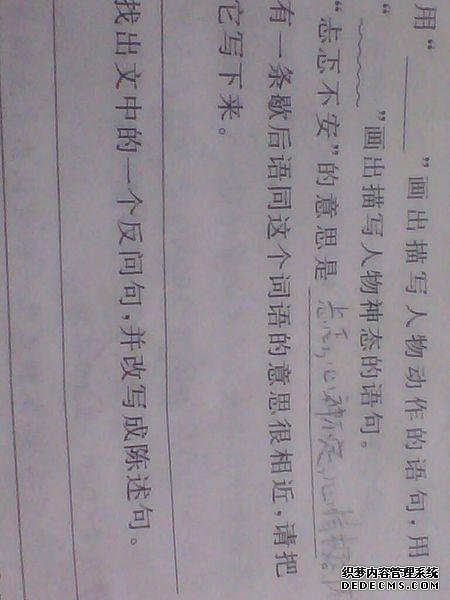 用“______”画出描写人物动作的语句，用
“﹏﹏﹏”画出描写人物神态的语句。
“忐忑不安”的意思是 忐忑，心神不定，心情极
有一条歇后语同这个词语的意思很相近，请把
它写下来。
找出文中的一个反问句，并改写成陈述句。
织梦内容管理系统
DEDECMS.COM